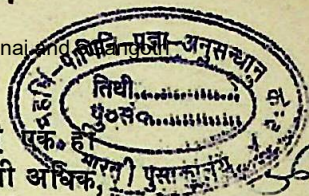 nai and eGangotri
महर्षि-पाणिनि-प्रज्ञा-अनुसन्धान केंद्र
तिथी..............
पु०सं०..............
एक ही
भारती पुस्तकालय
ी अधिक,